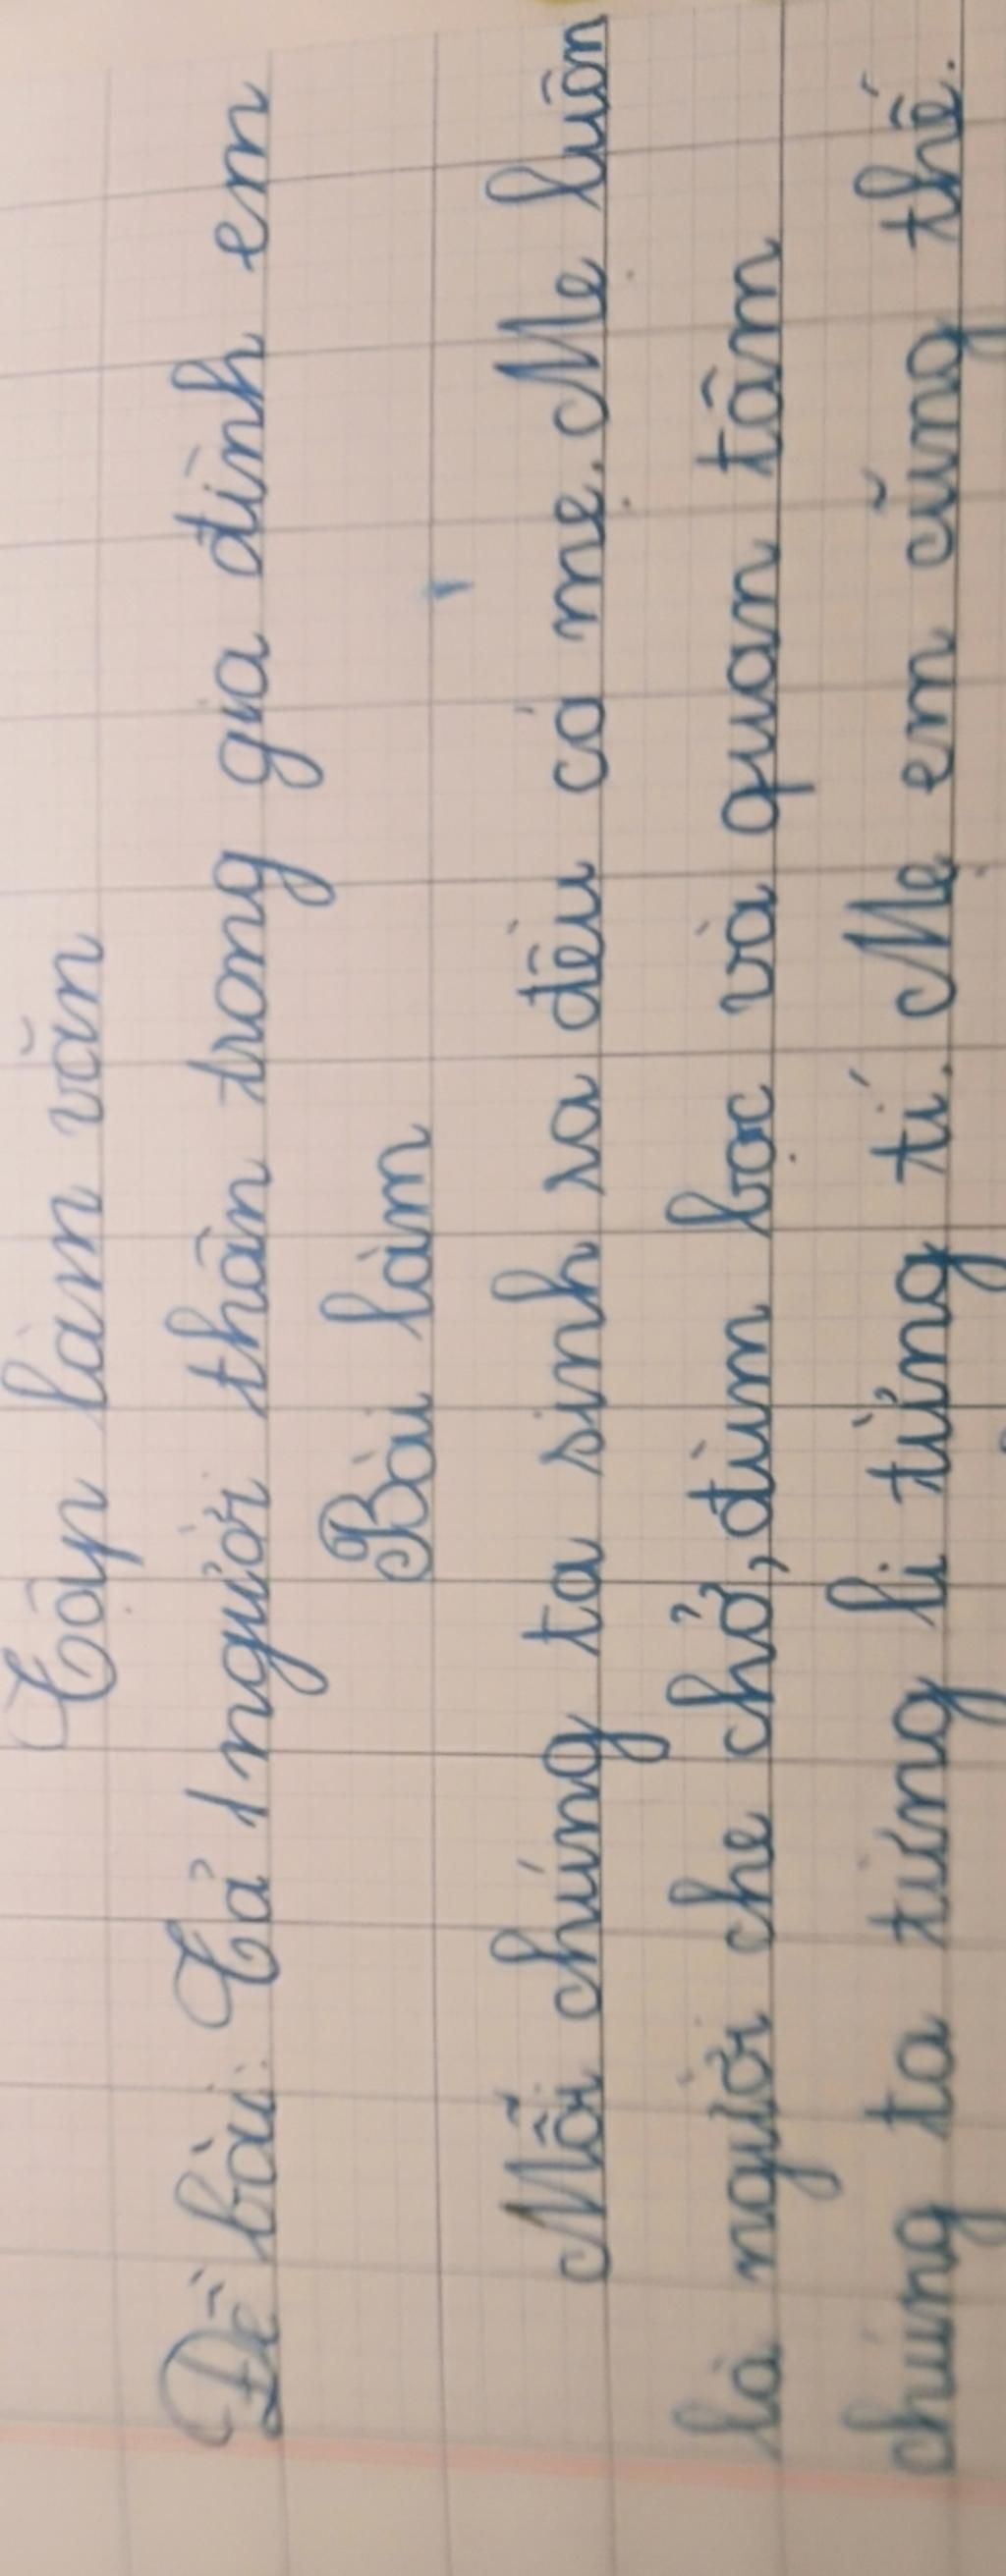 Tập làm văn
Đề bài: Tả 1 người thân trong gia đình em
Bài làm
Mỗi chúng ta sinh ra đều có mẹ. Mẹ luôn
là người che chở, đùm bọc và quan tâm
chúng ta từng li từng tí. Mẹ em cũng thế.